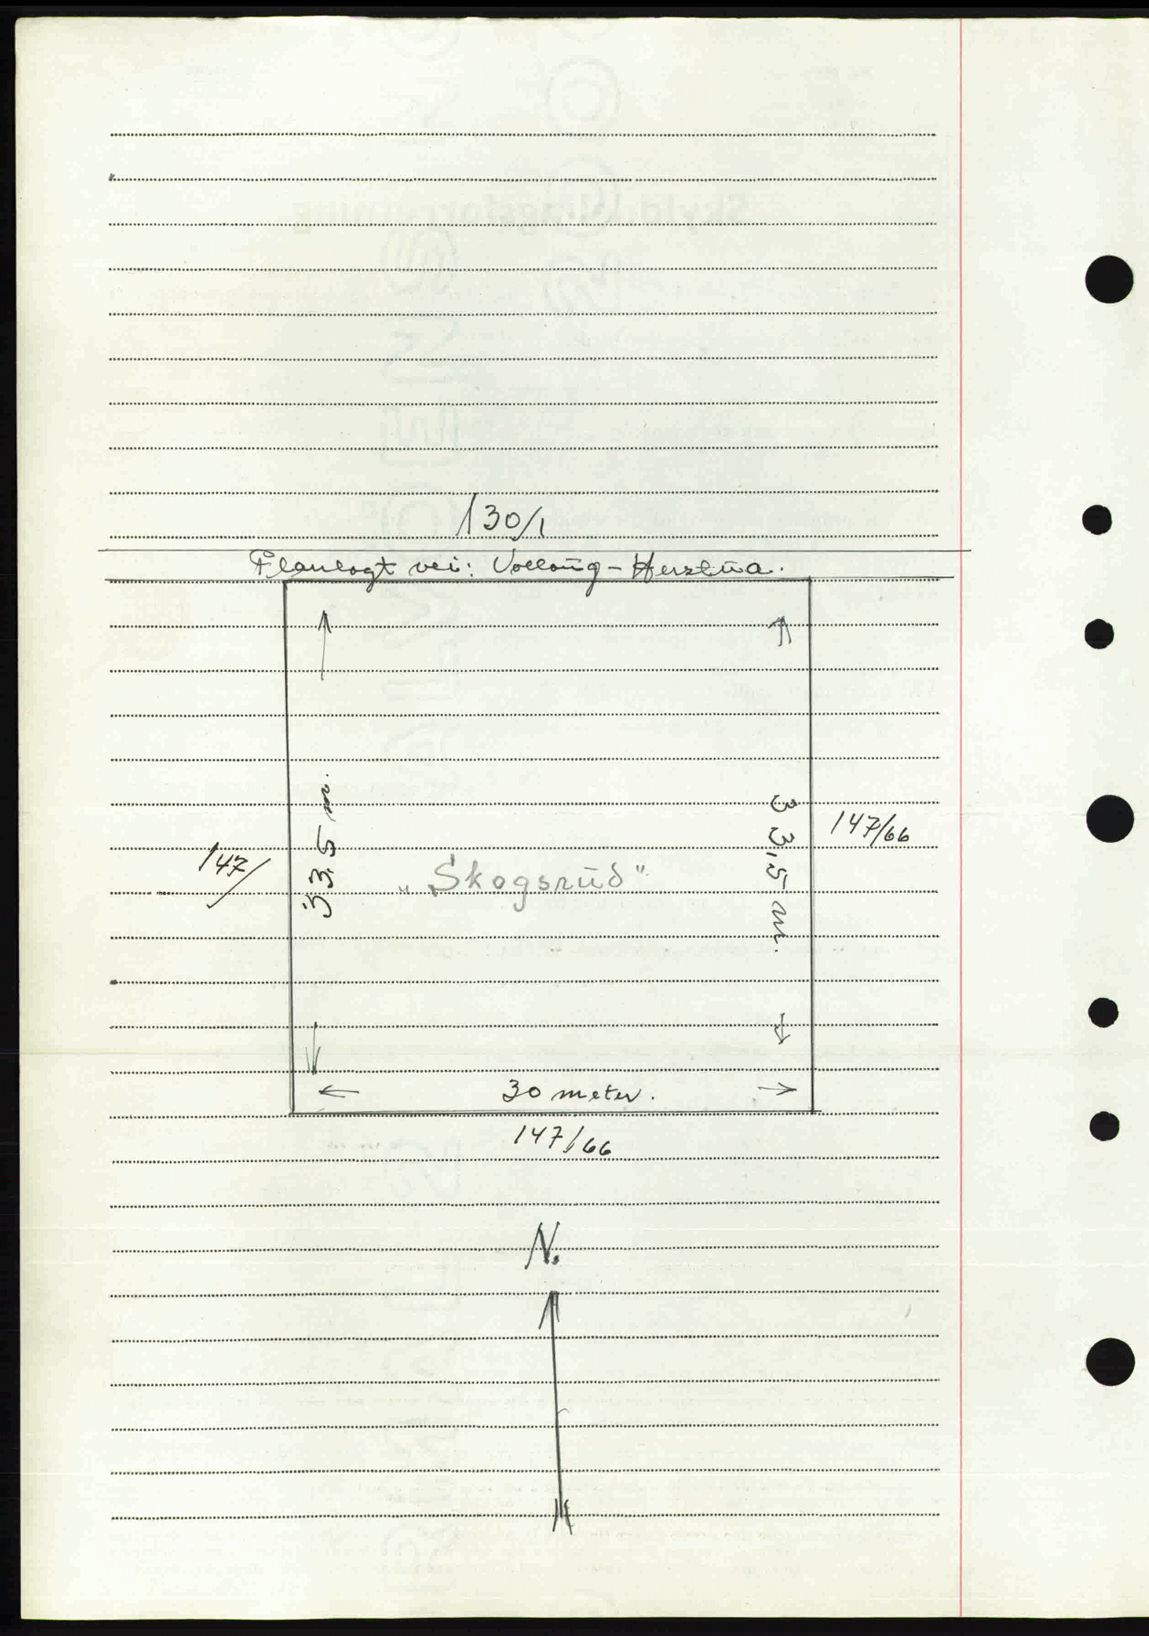 130/1
Planlagt vei: Vollaug - Herstua.
33,5 m.
33,5 m.
147/66
147/
„Skogsrud"
30 meter.
147/66
N.